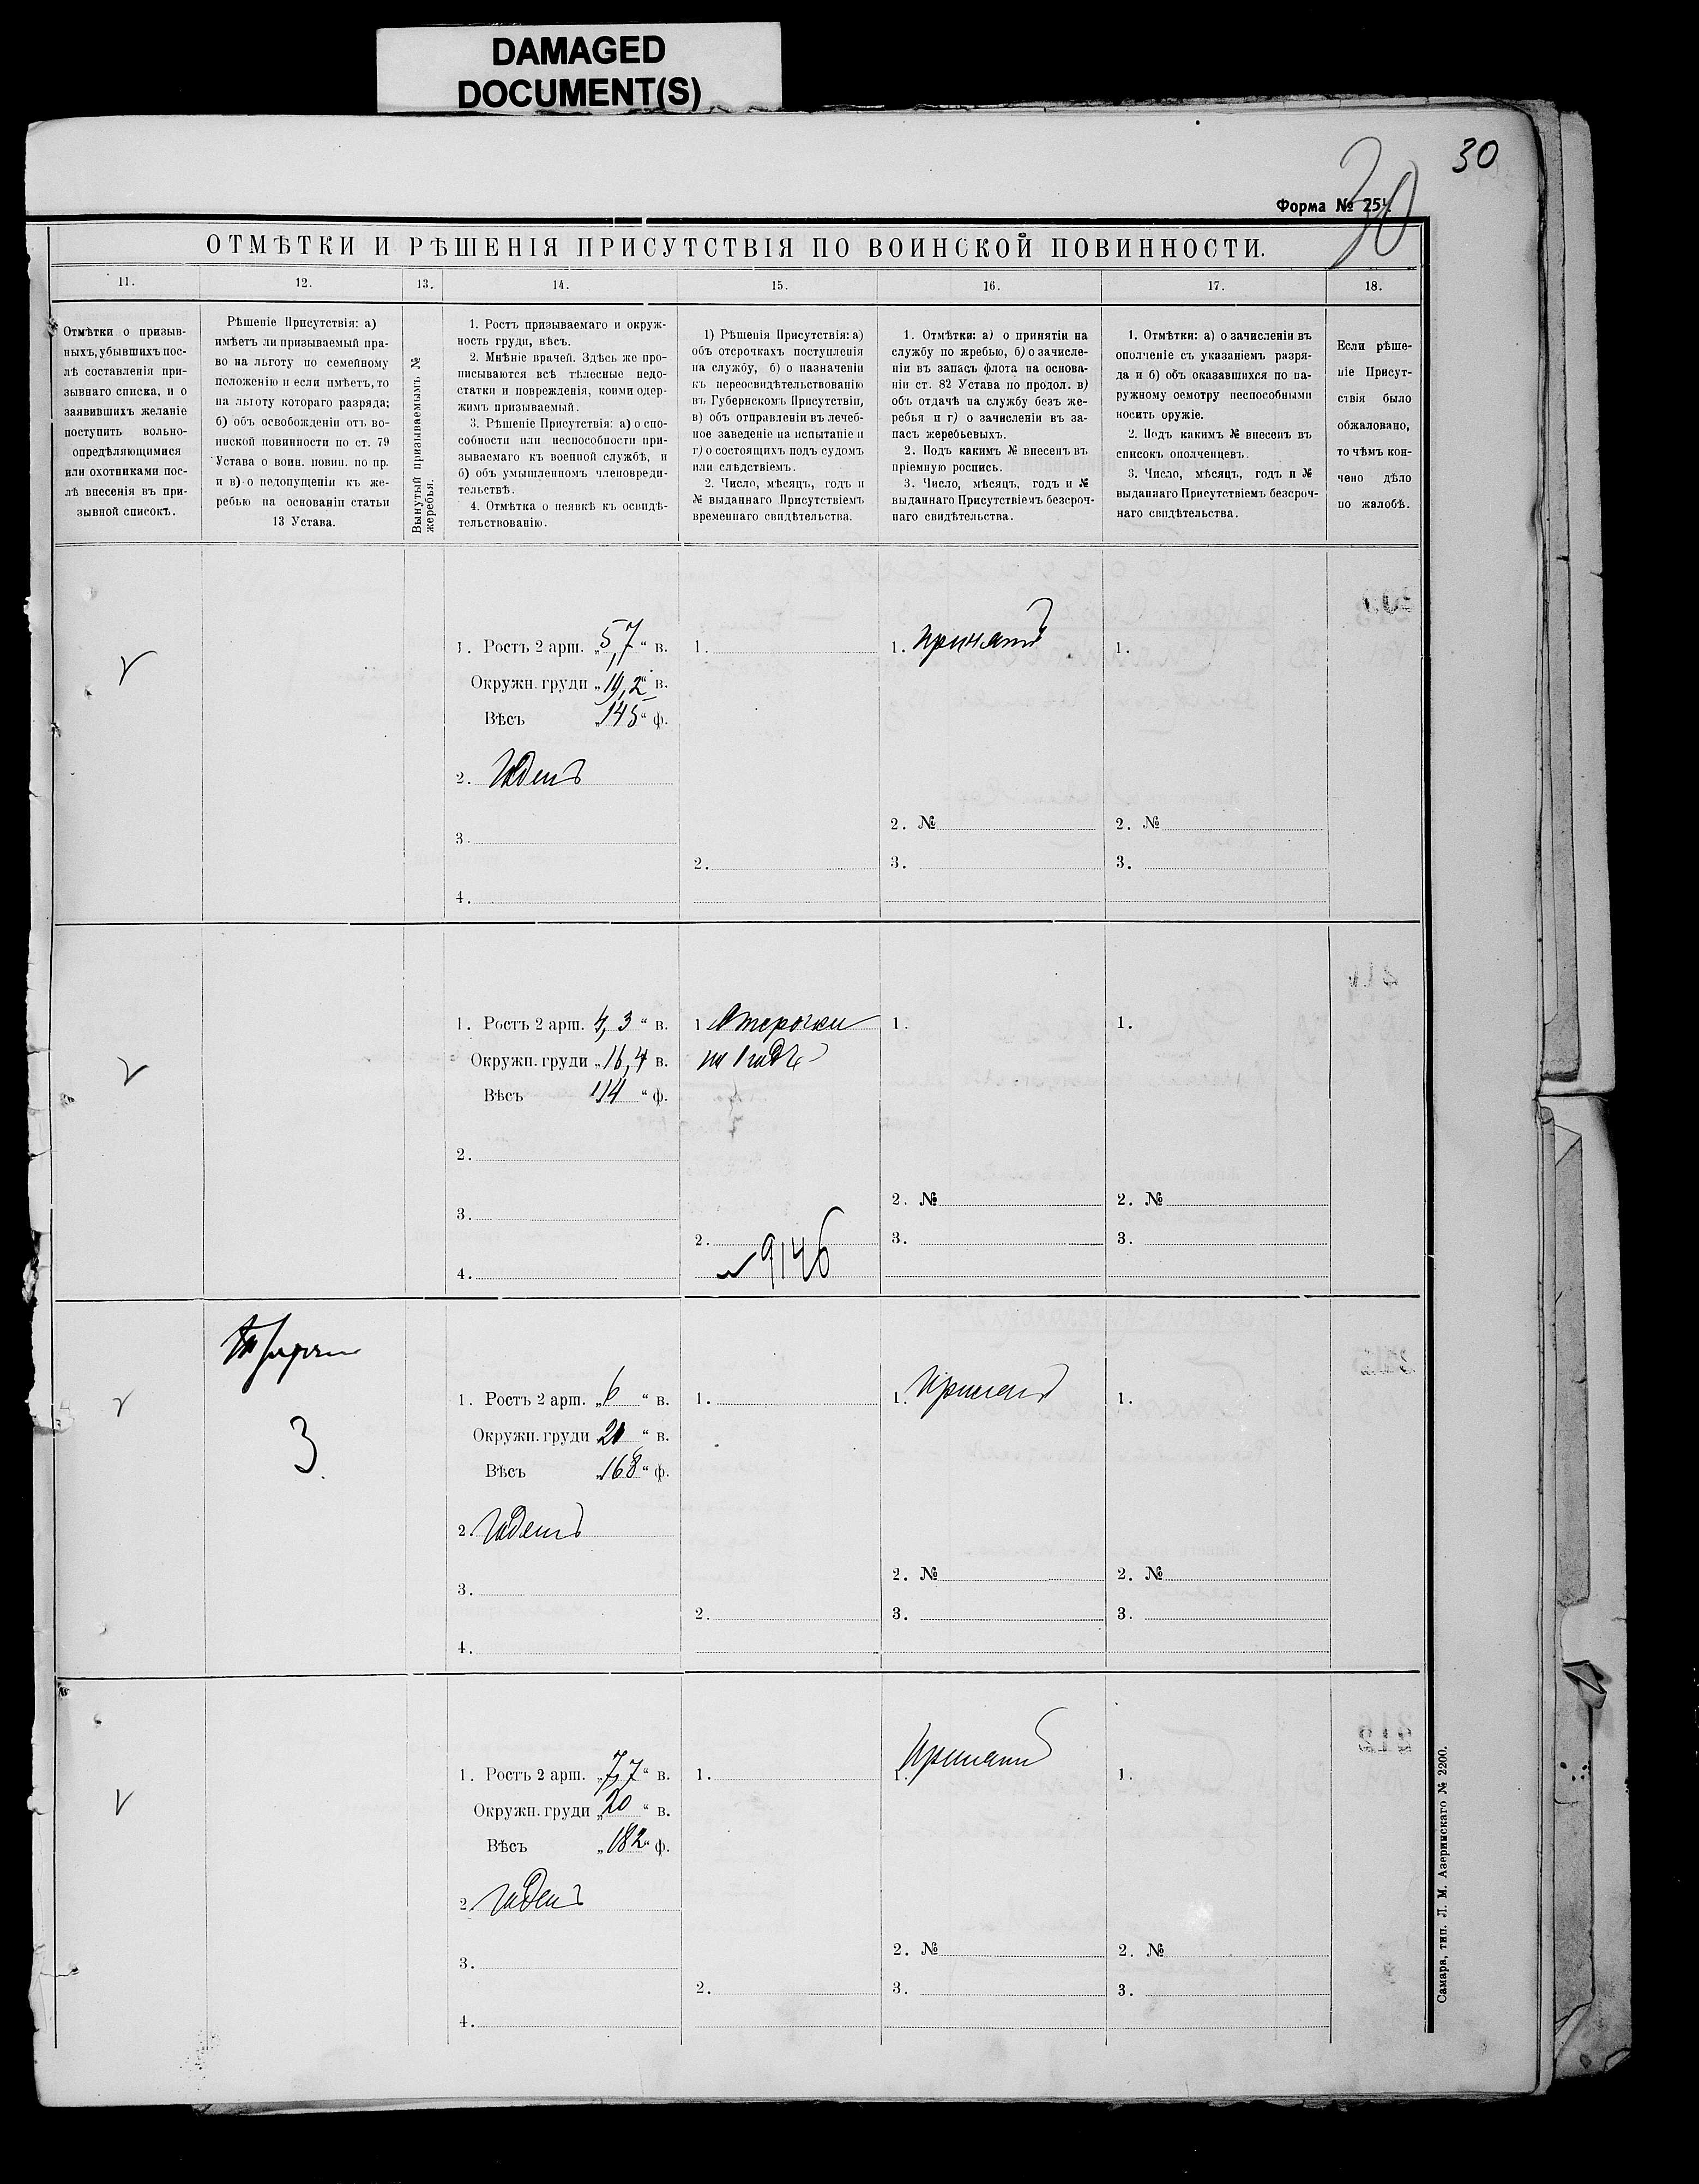 DAMAGED
DOCUMENT(S)
30
30
Форма № 254.
ОТМѢТКИ И РѢШЕНІЯ ПРИСУТСТВІЯ ПО ВОИНСКОЙ ПОВИННОСТИ.
11.
12.
13.
14.
15.
16.
17.
18.
Отмѣтки о призыв-
ныхъ, убывшихъ пос-
лѣ составленія при-
зывнаго списка, и о
заявившихъ желаніе
поступить вольно-
опредѣляющимися
или охотниками пос-
лѣ внесенія въ при-
зывной списокъ.
Рѣшеніе Присутствія: а)
имѣетъ ли призываемый пра-
во на льготу по семейному
положенію и если имѣетъ, то
на льготу котораго разряда;
б) объ освобожденіи отъ во-
инской повинности по ст. 79
Устава о воин. повин. по пр.
и в) о недопущеніи къ же-
ребью на основаніи статьи
13 Устава.
Вынутый призываемымъ №
жеребья.
1. Ростъ призываемаго и окруж-
ность груди, вѣсъ.
2. Мнѣніе врачей. Здѣсь же про-
писываются всѣ тѣлесные недо-
статки и поврежденія, коими одер-
жимъ призываемый.
3. Рѣшеніе Присутствія: а) о спо-
собности или неспособности при-
зываемаго къ военной службѣ, и
б) объ умышленномъ членовреди-
тельствѣ.
4. Отмѣтка о неявкѣ къ освидѣ-
тельствованію.
1) Рѣшенія Присутствія: а)
объ отсрочкахъ поступленія
на службу, б) о назначеніи
къ переосвидѣтельствованію
въ Губернскомъ Присутствіи,
в) объ отправленіи въ лечеб-
ное заведеніе на испытаніе и
г) о состоящихъ подъ судомъ
или слѣдствіемъ.
2. Число, мѣсяцъ, годъ и
№ выданнаго Присутствіемъ
временнаго свидѣтельства.
1. Отмѣтки: а) о принятіи на
службу по жребью, б) о зачисле-
ніи въ запасъ флота на основа-
ніи ст. 82 Устава по продол. в)
объ отдачѣ на службу безъ же-
ребья и г) о зачисленіи въ за-
пасъ жеребьевыхъ.
2. Подъ какимъ № внесенъ въ
пріемную роспись.
3. Число, мѣсяцъ, годъ и №
выданнаго Присутствіемъ безсроч-
наго свидѣтельства.
1. Отмѣтки: а) о зачисленіи въ
ополченіе съ указаніемъ разря-
да и б) объ оказавшихся по на-
ружному осмотру неспособными
носить оружіе.
2. Подъ какимъ № внесенъ въ
списокъ ополченцевъ.
3. Число, мѣсяцъ, годъ и №
выданнаго Присутствіемъ безсроч-
наго свидѣтельства.
Если рѣше-
ніе Присут-
ствія было
обжаловано,
то чѣмъ кон-
чено дѣло
по жалобѣ.
1. Ростъ 2 арш. „5,7“ в.
Окружн. груди „19,2“ в.
Вѣсъ „145“ ф.
2. Годенъ
3.
4.
1.
2.
1. Принятъ
2. №
3.
1.
2. №
3.
1. Ростъ 2 арш. 4,3 “ в.
Окружн. груди „16,4 в.
Вѣсъ 114 “ ф.
2.
3.
4.
1 Отсрочки
на 1 годъ
2.
№ 9146
1.
2. №
3.
1.
2. №
3.
3
1. Ростъ 2 арш. „6 “ в.
Окружн. груди 21 “ в.
Вѣсъ „168“ ф.
2. Годенъ
3.
4.
1.
2.
1. Принятъ
2. №
3.
1.
2. №
3.
1. Ростъ 2 арш. „7,7“ в.
Окружн. груди „20 “ в.
Вѣсъ „182“ ф.
2 Годенъ
3.
4.
1.
2.
1. Принятъ
2. №
3.
1.
2. №
3.
Самара, тип. Л. М. Азеринскаго № 2200.